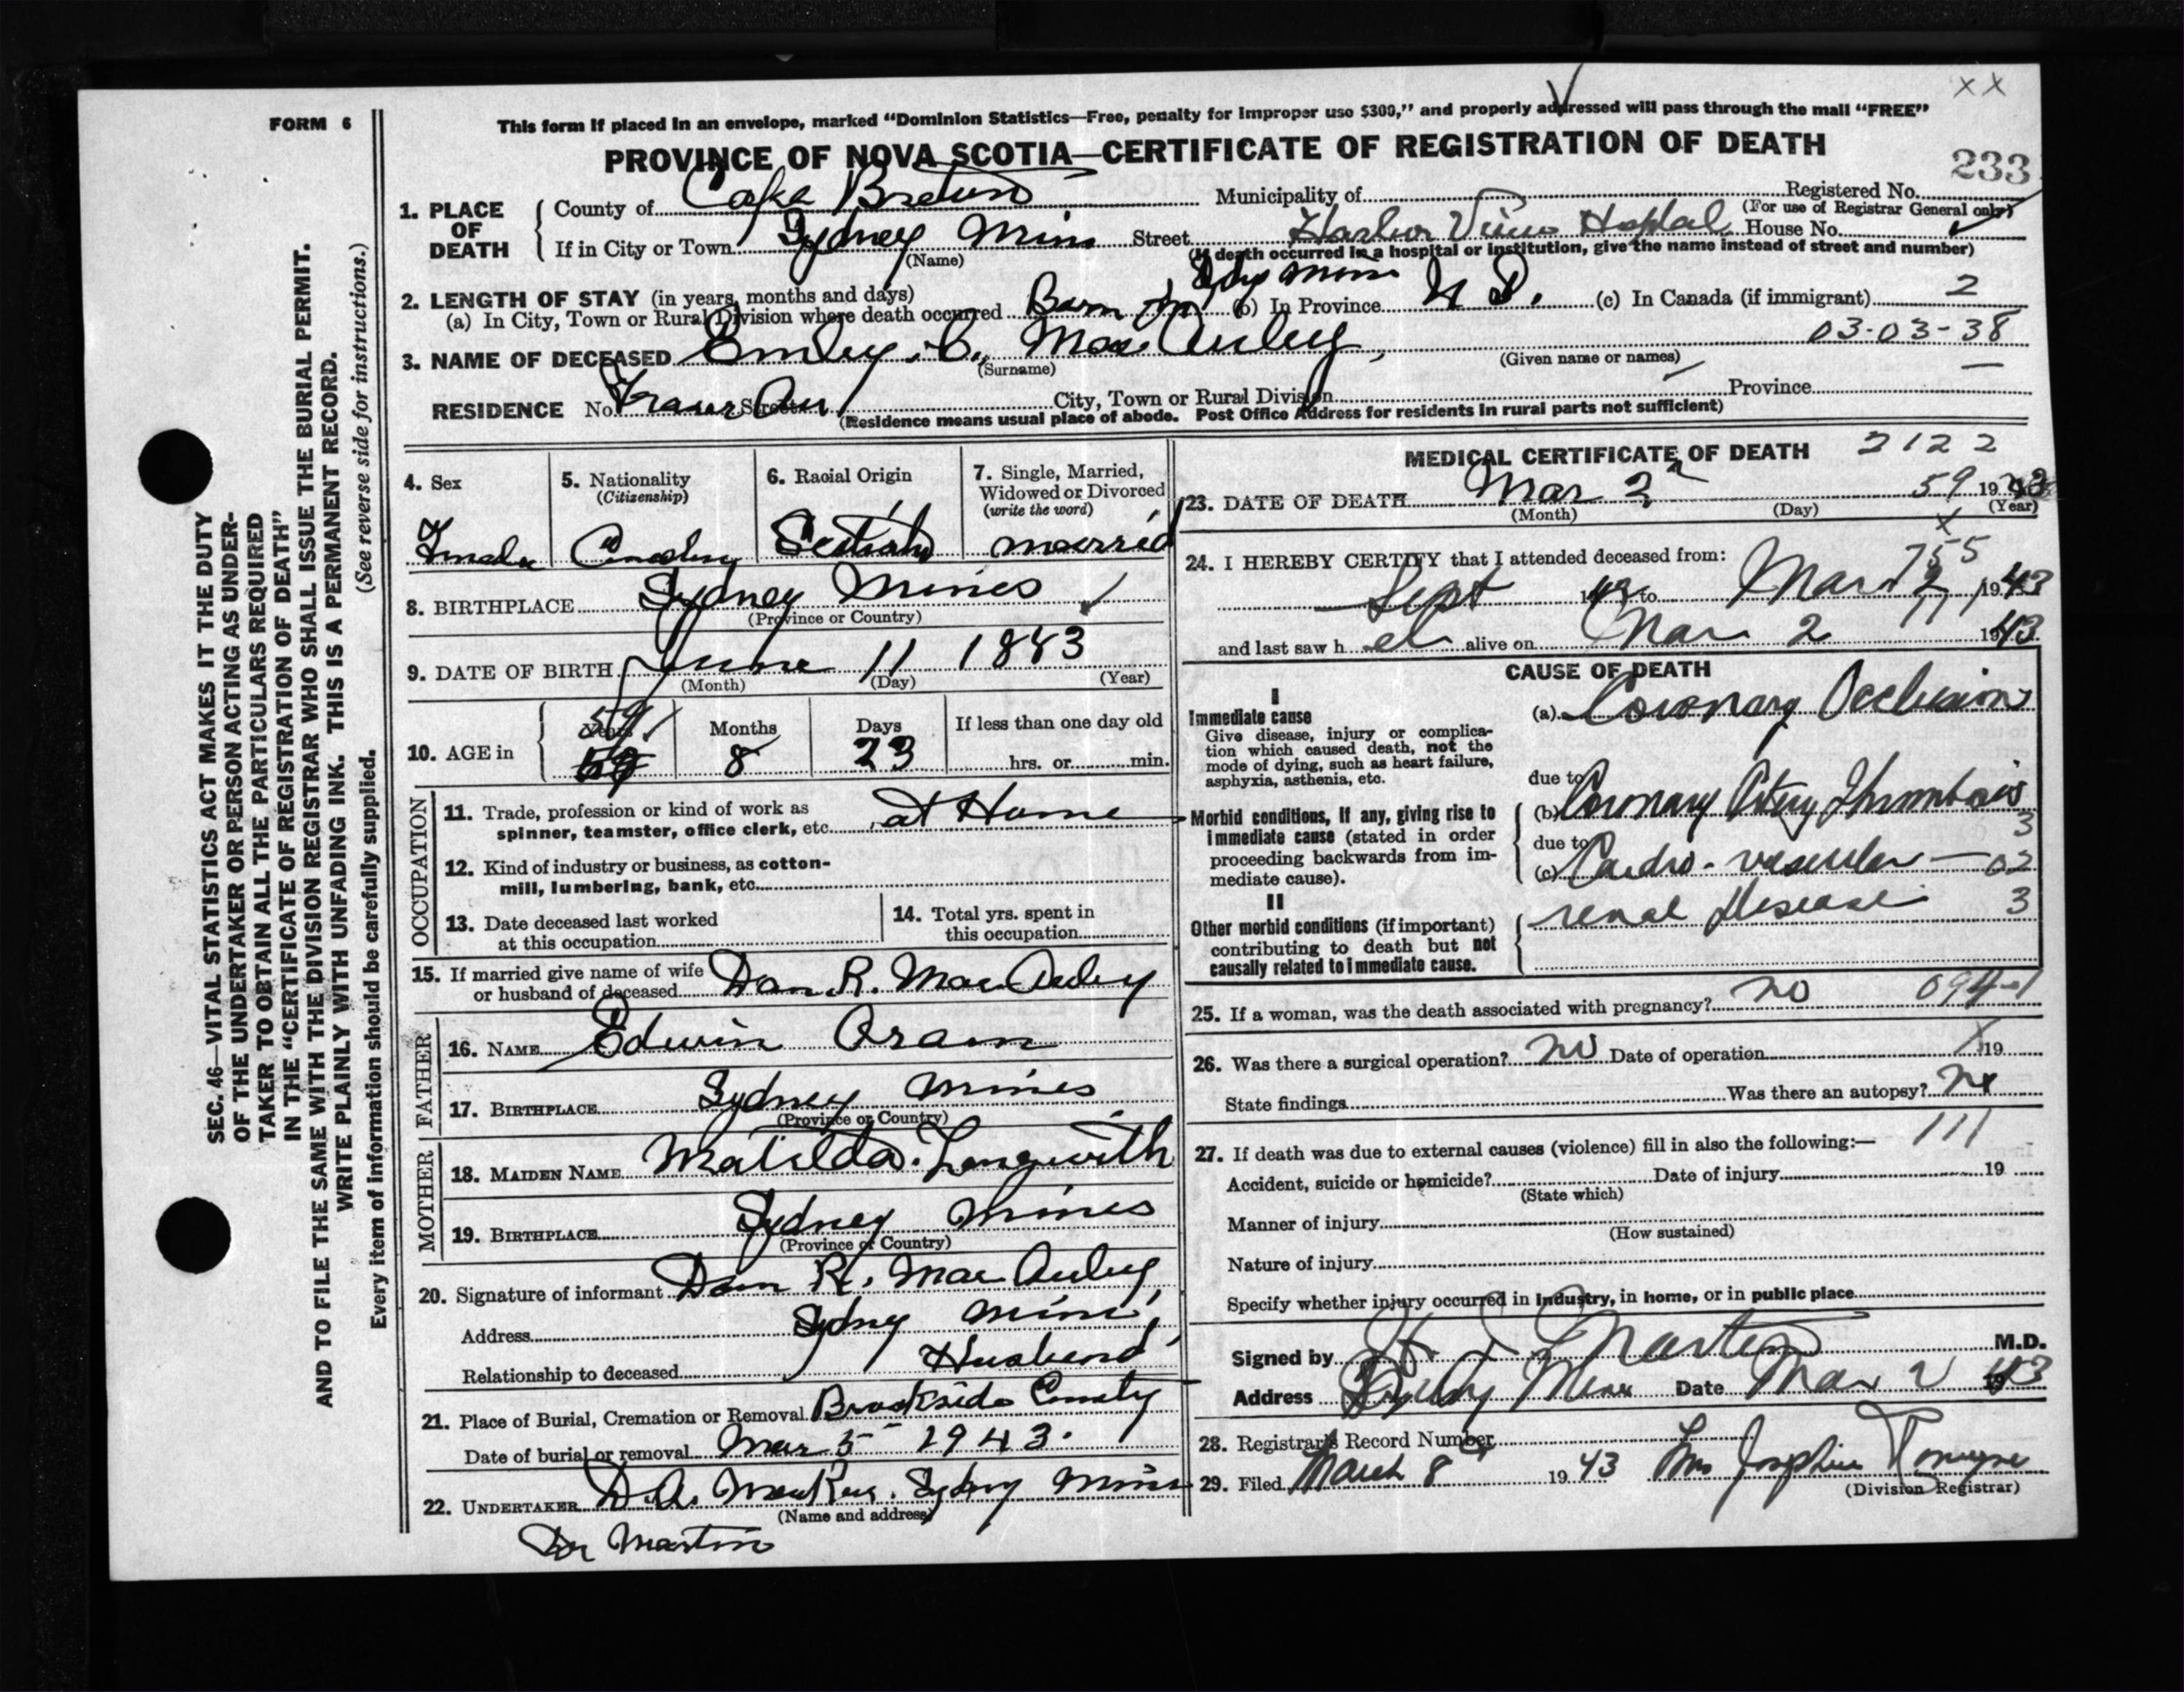 FORM 6
This form if placed in an envelope, marked “Dominion Statistics—Free, penalty for improper use $300,” and properly addressed will pass through the mail “FREE”
XX
PROVINCE OF NOVA SCOTIA—CERTIFICATE OF REGISTRATION OF DEATH
233
1. PLACE OF DEATH
County of Cape Breton Municipality of Registered No.
(For use of Registrar General only)
If in City or Town Sydney Mines Street Harbor View Hospital House No.
(Name) (If death occurred in a hospital or institution, give the name instead of street and number)
2. LENGTH OF STAY (in years, months and days)
(a) In City, Town or Rural Division where death occurred Born in Sydney Mines (b) In Province N S. (c) In Canada (if immigrant) 2
03-03-38
3. NAME OF DECEASED Emley. C. MacAuley,
(Surname) (Given name or names)
RESIDENCE No. Fraser Av Street City, Town or Rural Division Province —
(Residence means usual place of abode. Post Office Address for residents in rural parts not sufficient)
4. Sex
Female
5. Nationality
(Citizenship)
Canadian
6. Racial Origin
Scotish
7. Single, Married, Widowed or Divorced
(write the word)
married
8. BIRTHPLACE Sydney Mines
(Province or Country)
9. DATE OF BIRTH June 11 1883
(Month) (Day) (Year)
10. AGE in
Years 59
Months 8
Days 23
If less than one day old
hrs. or min.
OCCUPATION
11. Trade, profession or kind of work as
spinner, teamster, office clerk, etc. at Home
12. Kind of industry or business, as cotton-
mill, lumbering, bank, etc.
13. Date deceased last worked
at this occupation
14. Total yrs. spent in
this occupation
15. If married give name of wife
or husband of deceased Dan R. MacAuley
FATHER
16. NAME Edwin Oram
17. BIRTHPLACE Sydney Mines
(Province or Country)
MOTHER
18. MAIDEN NAME Matilda. Longwith
19. BIRTHPLACE Sydney Mines
(Province or Country)
20. Signature of informant Dan R. MacAuley
Address Sydney Mines
Relationship to deceased Husband
21. Place of Burial, Cremation or Removal Brookside
Date of burial or removal Mar 5 1943.
22. UNDERTAKER D.A. Sydney Mines
(Name and address)
Dr Martin
MEDICAL CERTIFICATE OF DEATH 2122
23. DATE OF DEATH Mar 2 59 1943
(Month) (Day) (Year)
X
24. I HEREBY CERTIFY that I attended deceased from: 755
Sept 19 to Mar 2 1943
and last saw h er alive on Mar 2 1943
CAUSE OF DEATH
I
Immediate cause
Give disease, injury or complica-
tion which caused death, not the
mode of dying, such as heart failure,
asphyxia, asthenia, etc.
(a) Coronary Occlusion
due to
Morbid conditions, if any, giving rise to
immediate cause (stated in order
proceeding backwards from im-
mediate cause).
(b) Coronary Artery Thrombosis
3
due to
(c) Cardro-vascular — 02
II
Other morbid conditions (if important)
contributing to death but not
causally related to immediate cause.
renal Disease 3
25. If a woman, was the death associated with pregnancy? no 094-1
26. Was there a surgical operation? no Date of operation X 19
State findings Was there an autopsy? no
27. If death was due to external causes (violence) fill in also the following:— 111
Accident, suicide or homicide? Date of injury 19
(State which)
Manner of injury
(How sustained)
Nature of injury
Specify whether injury occurred in industry, in home, or in public place
Signed by Martin M.D.
Address Sydney Mines Date Mar 2 1943
28. Registrar's Record Number
29. Filed March 8 1943 Mrs Josephine
(Division Registrar)
SEC. 46—VITAL STATISTICS ACT MAKES IT THE DUTY
OF THE UNDERTAKER OR PERSON ACTING AS UNDER-
TAKER TO OBTAIN ALL THE PARTICULARS REQUIRED
IN THE “CERTIFICATE OF REGISTRATION OF DEATH”
AND TO FILE THE SAME WITH THE DIVISION REGISTRAR WHO SHALL ISSUE THE BURIAL PERMIT.
WRITE PLAINLY WITH UNFADING INK. THIS IS A PERMANENT RECORD.
(See reverse side for instructions.)
Every item of information should be carefully supplied.